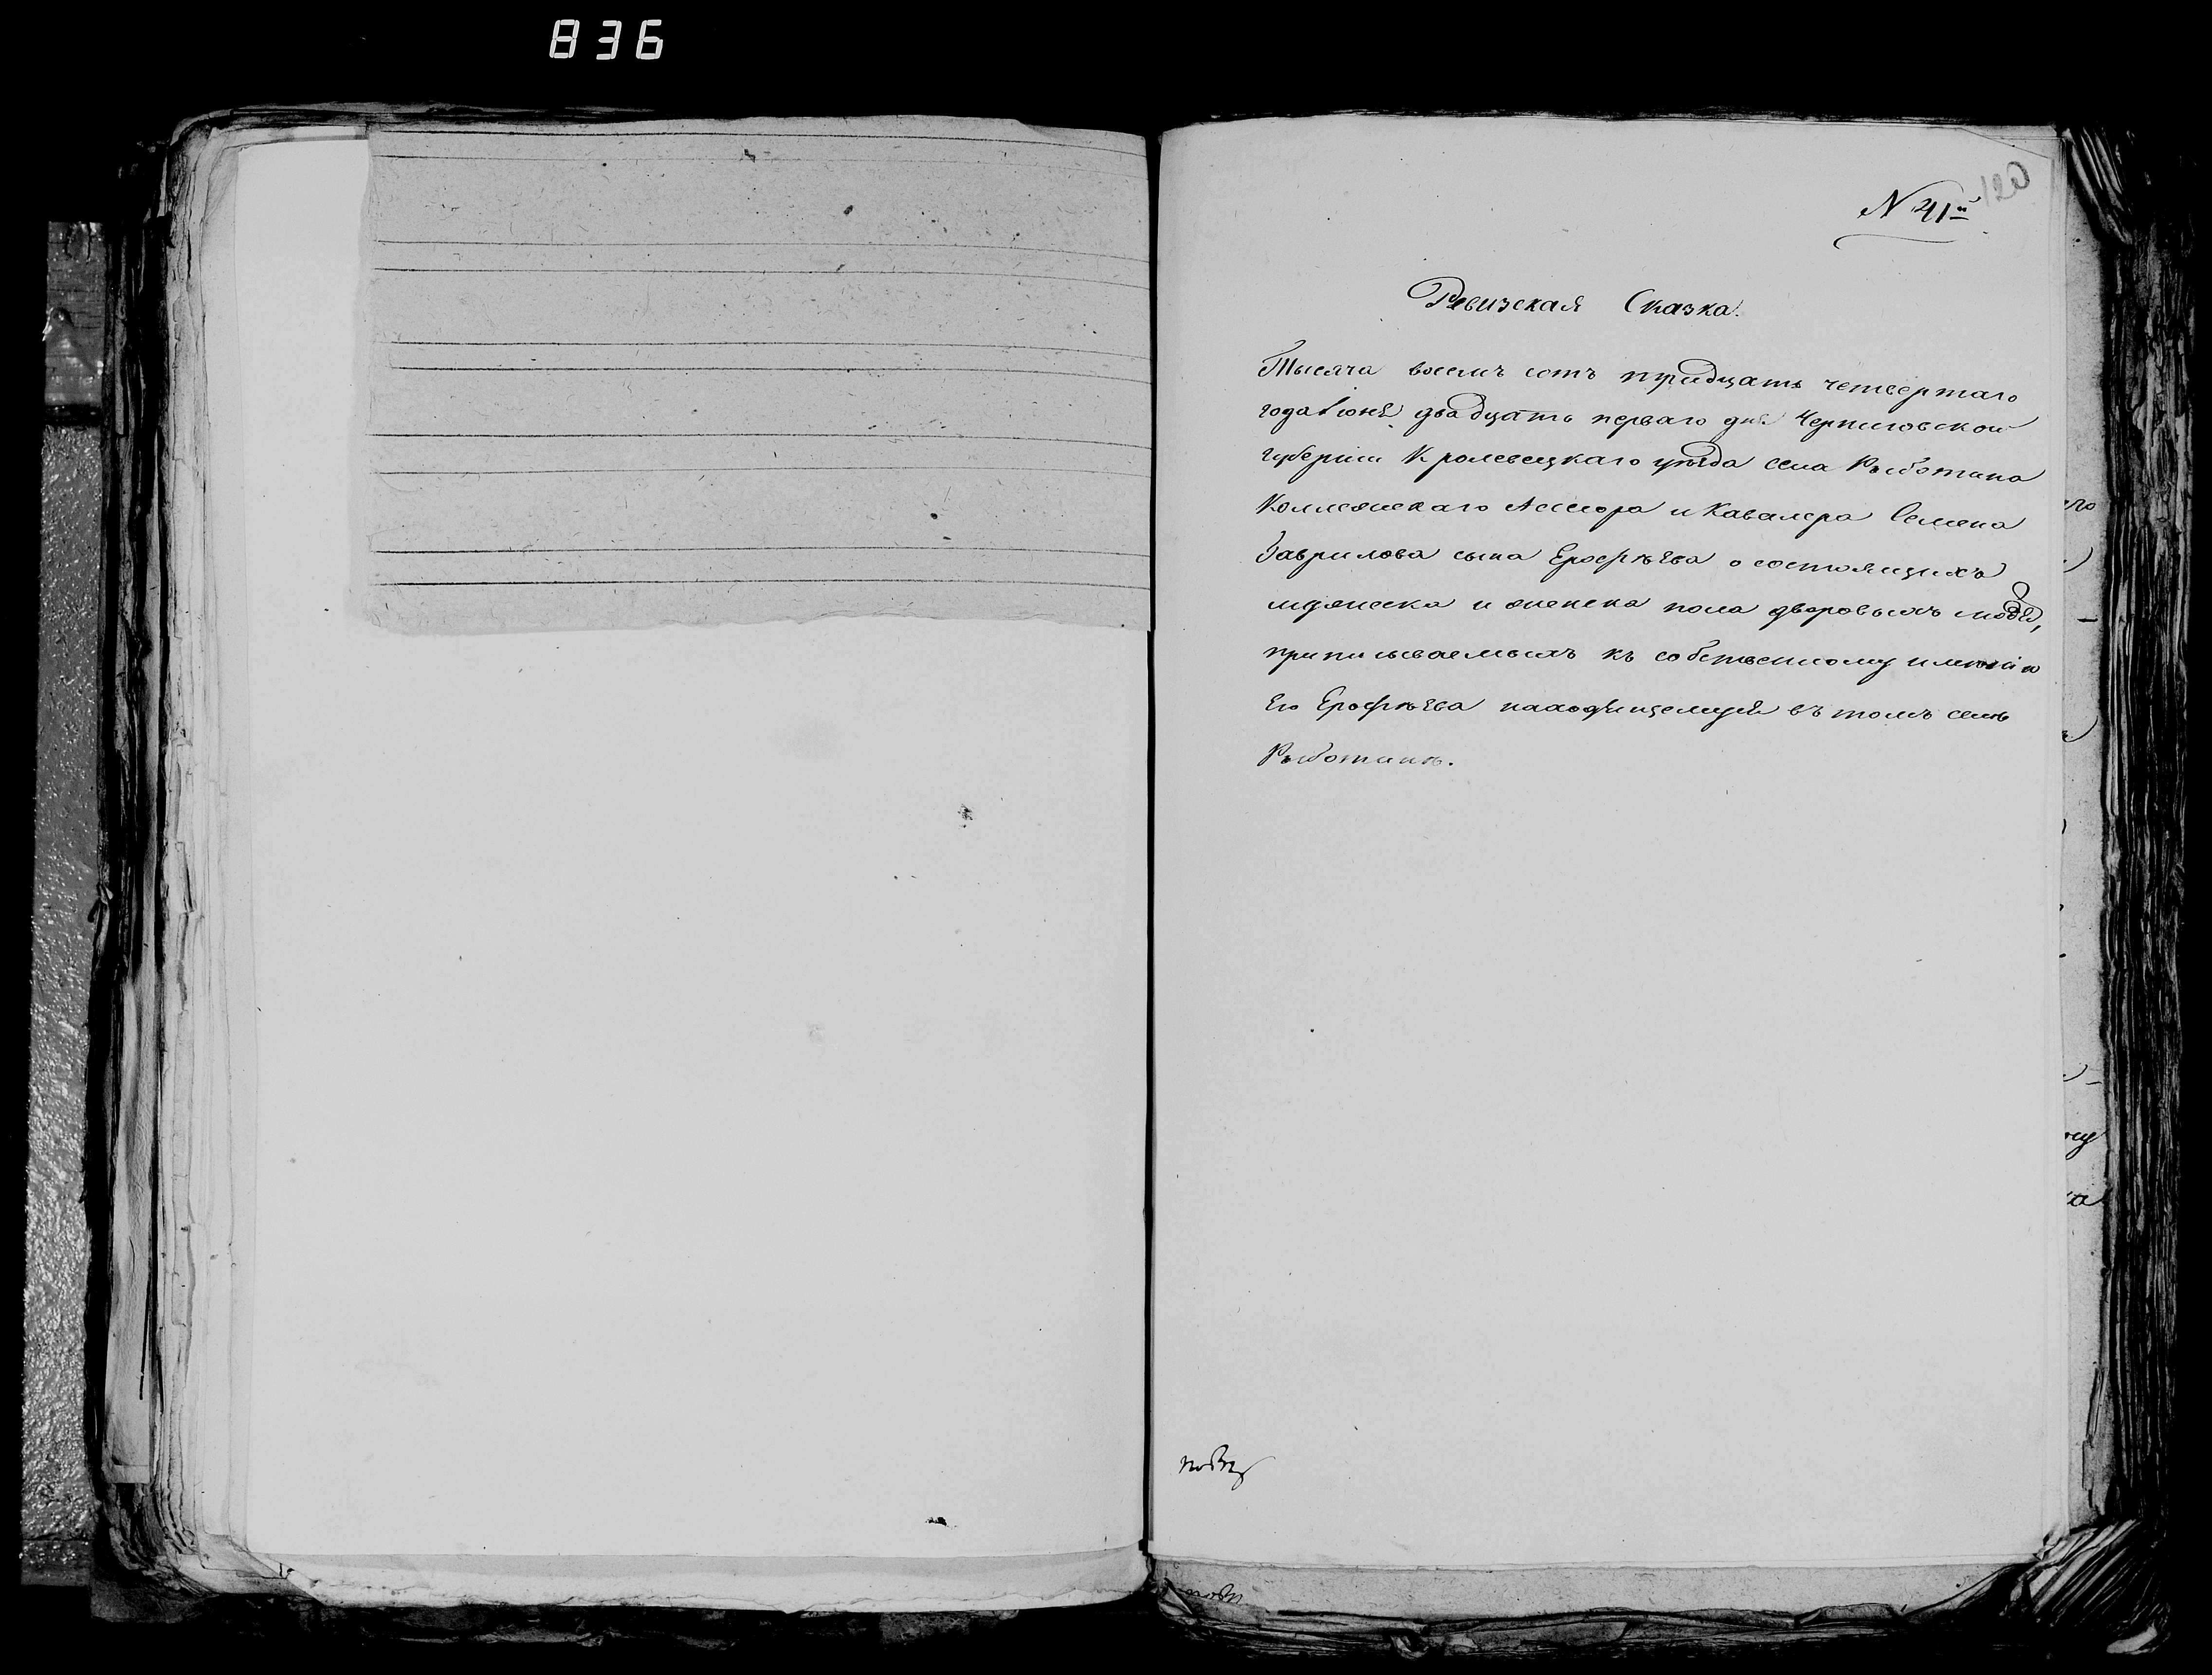 836
120
N 41й
Ревизская Сказка.
Тысяча восемъ сотъ тридцать четвертаго
года Іюня двадцать перваго дня Черниговской
губерніи Кролевецкаго уѣзда села Рыботина
Коллежскаго Ассесора и Кавалера Семена
Гаврилова сына Ерофѣева о состоящихъ
мужеска и женска пола дворовыхъ людей,
приписываемыхъ къ собственному имѣнію
Его Ерофѣева находящемуся въ томъ селѣ
Рыботинѣ.